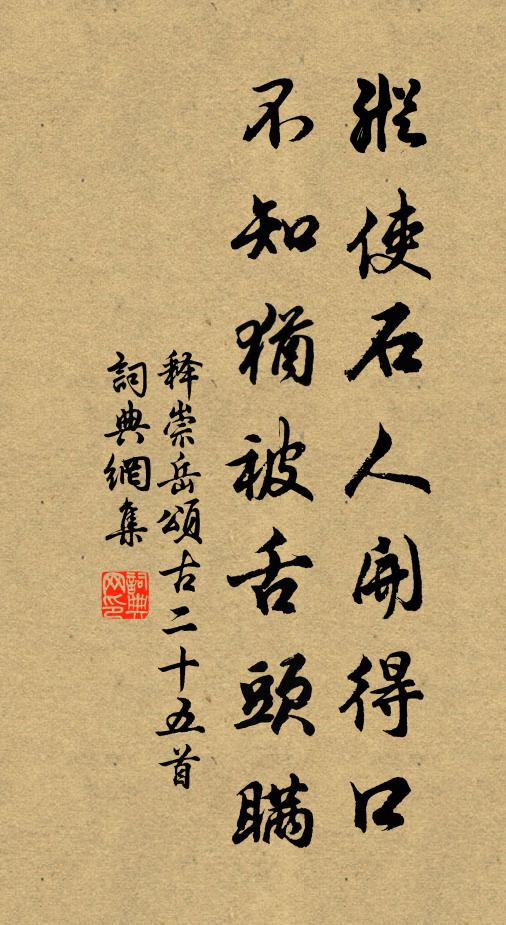 縱使石人開得口
不知猶被舌頭瞞
释崇岳頌古二十五首
詞典網集
詞典
网印